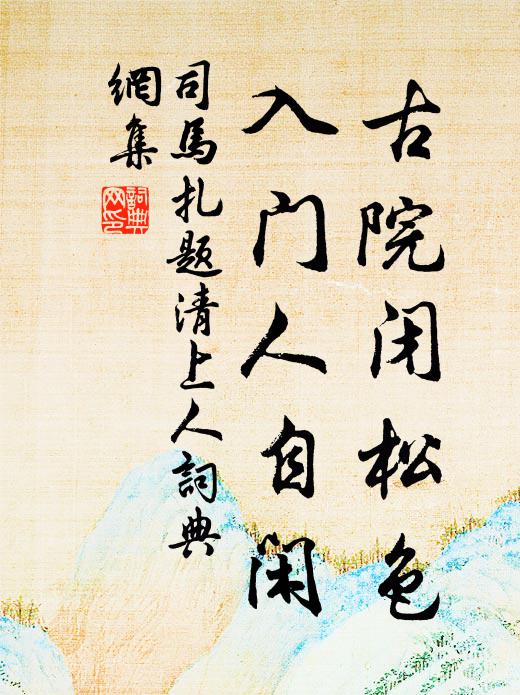 古院闭松色
入门人自闲
司馬扎题清上人詞典
網集
詞典网印